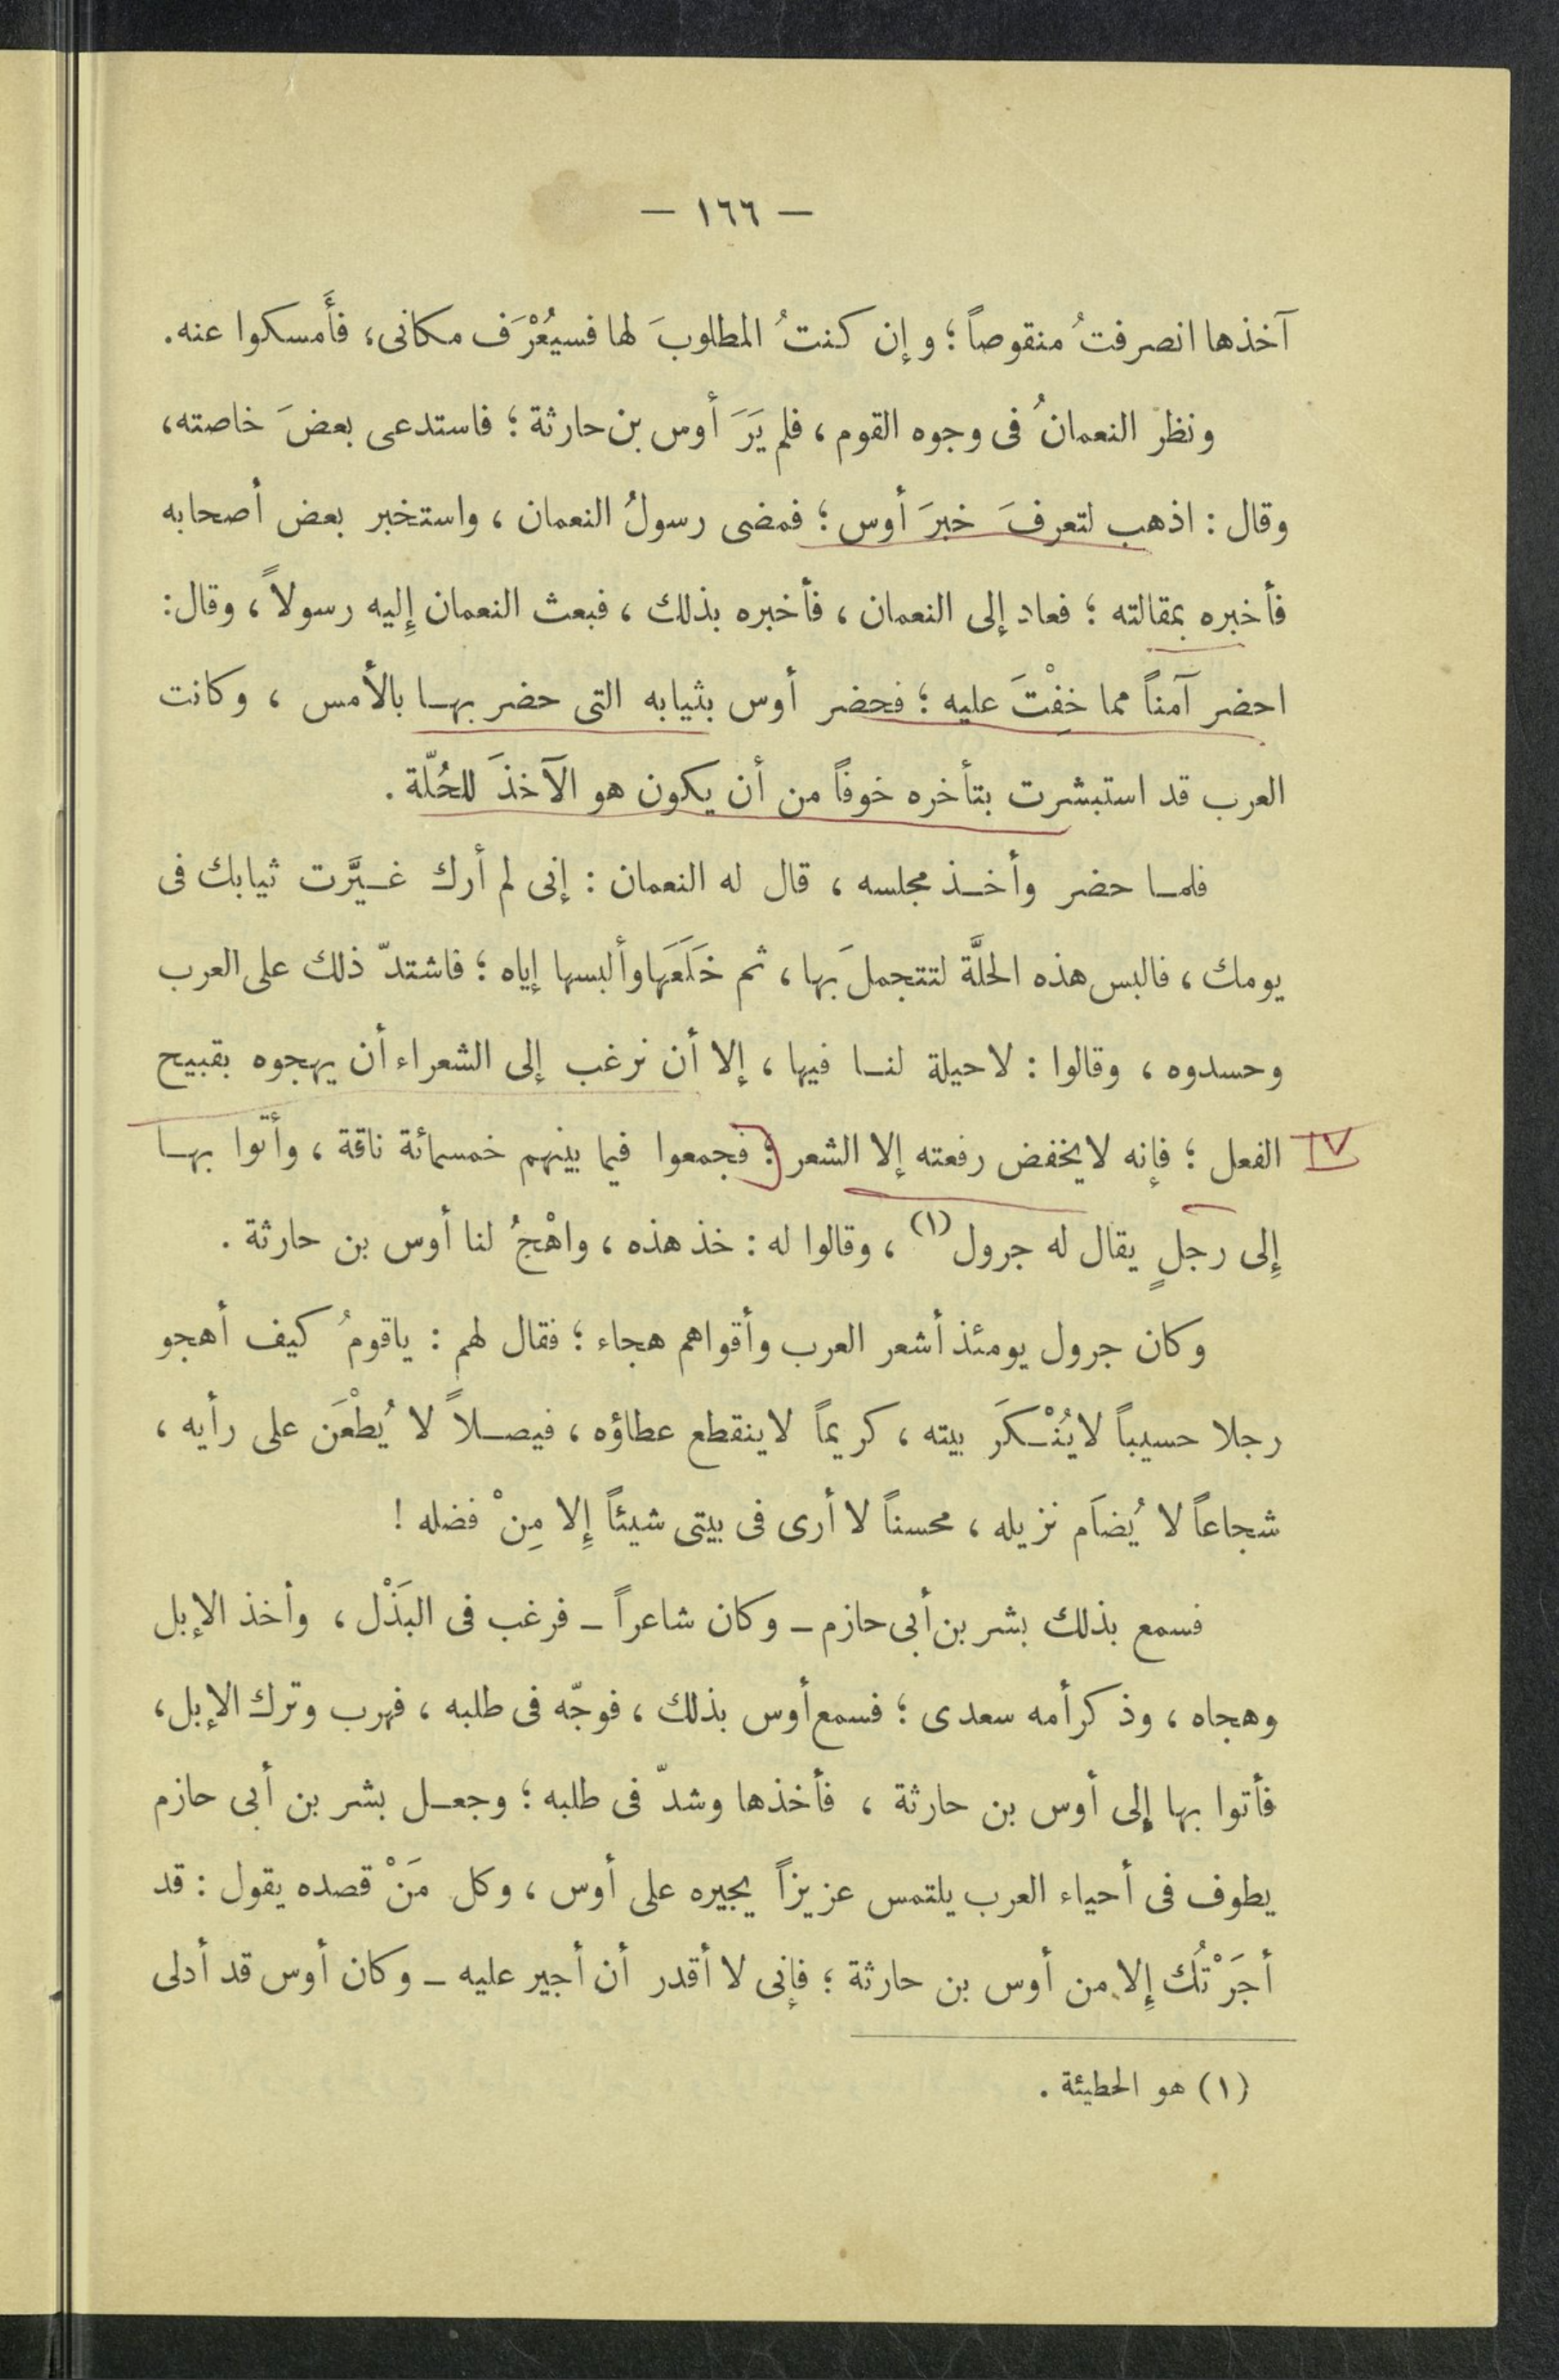 — ١٦٦ —
آخذها انصرفتُ منقوصاً ؛ وإن كنتُ المطلوبَ لها فسيُعْرَف مكانى، فأَمسكوا عنه.
ونظر النعمانُ فى وجوه القوم ، فلم يَرَ أوس بن حارثة ؛ فاستدعى بعضَ خاصته،
وقال : اذهب لتعرفَ خبرَ أوس ؛ فمضى رسولُ النعمان ، واستخبر بعض أصحابه
فأخبره بمقالته ؛ فعاد إلى النعمان ، فأخبره بذلك ، فبعث النعمان إِليه رسولاً ، وقال:
احضر آمناً مما خِفْتَ عليه ؛ فحضر أوس بثيابه التى حضر بهـا بالأمس ، وكانت
العرب قد استبشرت بتأخره خوفاً من أن يكون هو الآخذَ للحُلّة .
فلمـا حضر وأخـذ مجلسه ، قال له النعمان : إنى لم أرك غـيَّرت ثيابك فى
يومك ، فالبس هذه الحلَّة لتتجملَ بها ، ثم خَلَعَها وألبسها إياه ؛ فاشتدّ ذلك على العرب
وحسدوه ، وقالوا : لاحيلة لنـا فيها ، إلا أن نرغب إلى الشعراء أن يهجوه بقبيح
الفعل ؛ فإنه لايخفض رفعته إلا الشعر ؛ فجمعوا فيما بينهم خمسمائة ناقة ، وأتوا بهـا
إِلى رجلٍ يقال له جرول (١) ، وقالوا له : خذ هذه ، واهْجُ لنا أوس بن حارثة .
وكان جرول يومئذ أشعر العرب وأقواهم هجاء ؛ فقال لهم : ياقومُ كيف أهجو
رجلا حسيباً لايُنْـكَر بيته ، كريماً لاينقطع عطاؤه ، فيصـلاً لا يُطْعَن على رأيه ،
شجاعاً لا يُضاَم نزيله ، محسناً لا أرى فى بيتى شيئاً إِلا مِنْ فضله !
فسمع بذلك بشر بن أبى حازم ــ وكان شاعراً ــ فرغب فى البَذْل ، وأخذ الإبل
وهجاه ، وذكر أمه سعدى ؛ فسمع أوس بذلك ، فوجّه فى طلبه ، فهرب وترك الإبل،
فأتوا بها إِلى أوس بن حارثة ، فأخذها وشدّ فى طلبه ؛ وجعـل بشر بن أبى حازم
يطوف فى أحياء العرب يلتمس عزيزاً يجيره على أوس ، وكل مَنْ قصده يقول : قد
أجَرْتُك إِلا من أوس بن حارثة ؛ فإنى لا أقدر أن أجير عليه ــ وكان أوس قد أدلى
(١) هو الحطيئة .